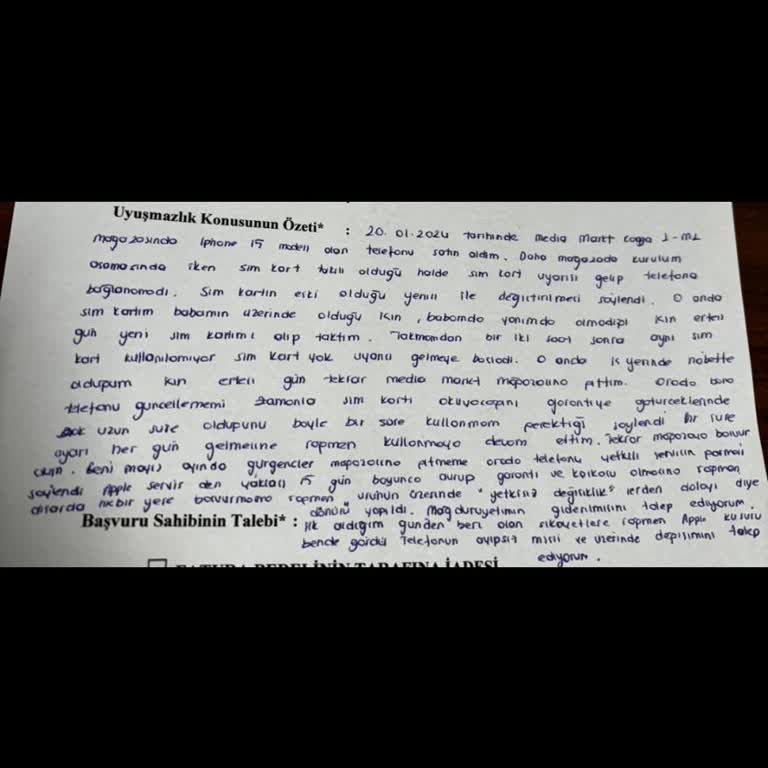 Uyuşmazlık Konusunun Özeti* : 20.01.2024 tarihinde Media Markt
mağazasında Iphone 15 modeli olan telefonu satın aldım. Daha mağazada kurulum
aşamasında iken sim kart takılı olduğu halde sim kart uyarısı gelip telefona
bağlanamadı. Sim kartın eski olduğu yenisi ile değiştirilmesi söylendi. O anda
sim kartım babamın üzerinde olduğu için, babamda yanımda olmadığı için ertesi
gün yeni sim kartımı alıp taktım. Takmamdan bir iki saat sonra aynı sim
kart kullanılamıyor sim kart yok uyarısı gelmeye başladı. O anda iş yerinde nöbette
olduğum için ertesi gün tekrar media markt mağazasına gittim. Orada bana
telefonu güncellememi zamanla sim kartı okuyacağını garantiye götürceklerinde
çok uzun süre olduğunu böyle bir süre kullanmam gerektiği söylendi Bir süre
uyarı her gün gelmesine rağmen kullanmaya devam ettim. Tekrar mağazaya
Beni mayıs ayında gürgençler mağazasına gitmeme orada telefonu yetkili servisin
söylendi Apple servis den yaklaşık 15 gün boyunca durup garanti ve kaskolu olmasına rağmen
dışarda hiçbir yere başvurmama rağmen "ürünün üzerinde "yetkisiz değişiklik" lerden dolayı diye
dönüşü yapıldı. Mağduruyetimin giderilmesini talep ediyorum.
Başvuru Sahibinin Talebi* : İlk aldığım günden beri olan şikayetlere rağmen Apple kusuru
bende gördü Telefonun ayıpsız misli ve üzerinde değişimini talep
ediyorum.
FATURA BEDELİNİN TARAFINA İADESİ